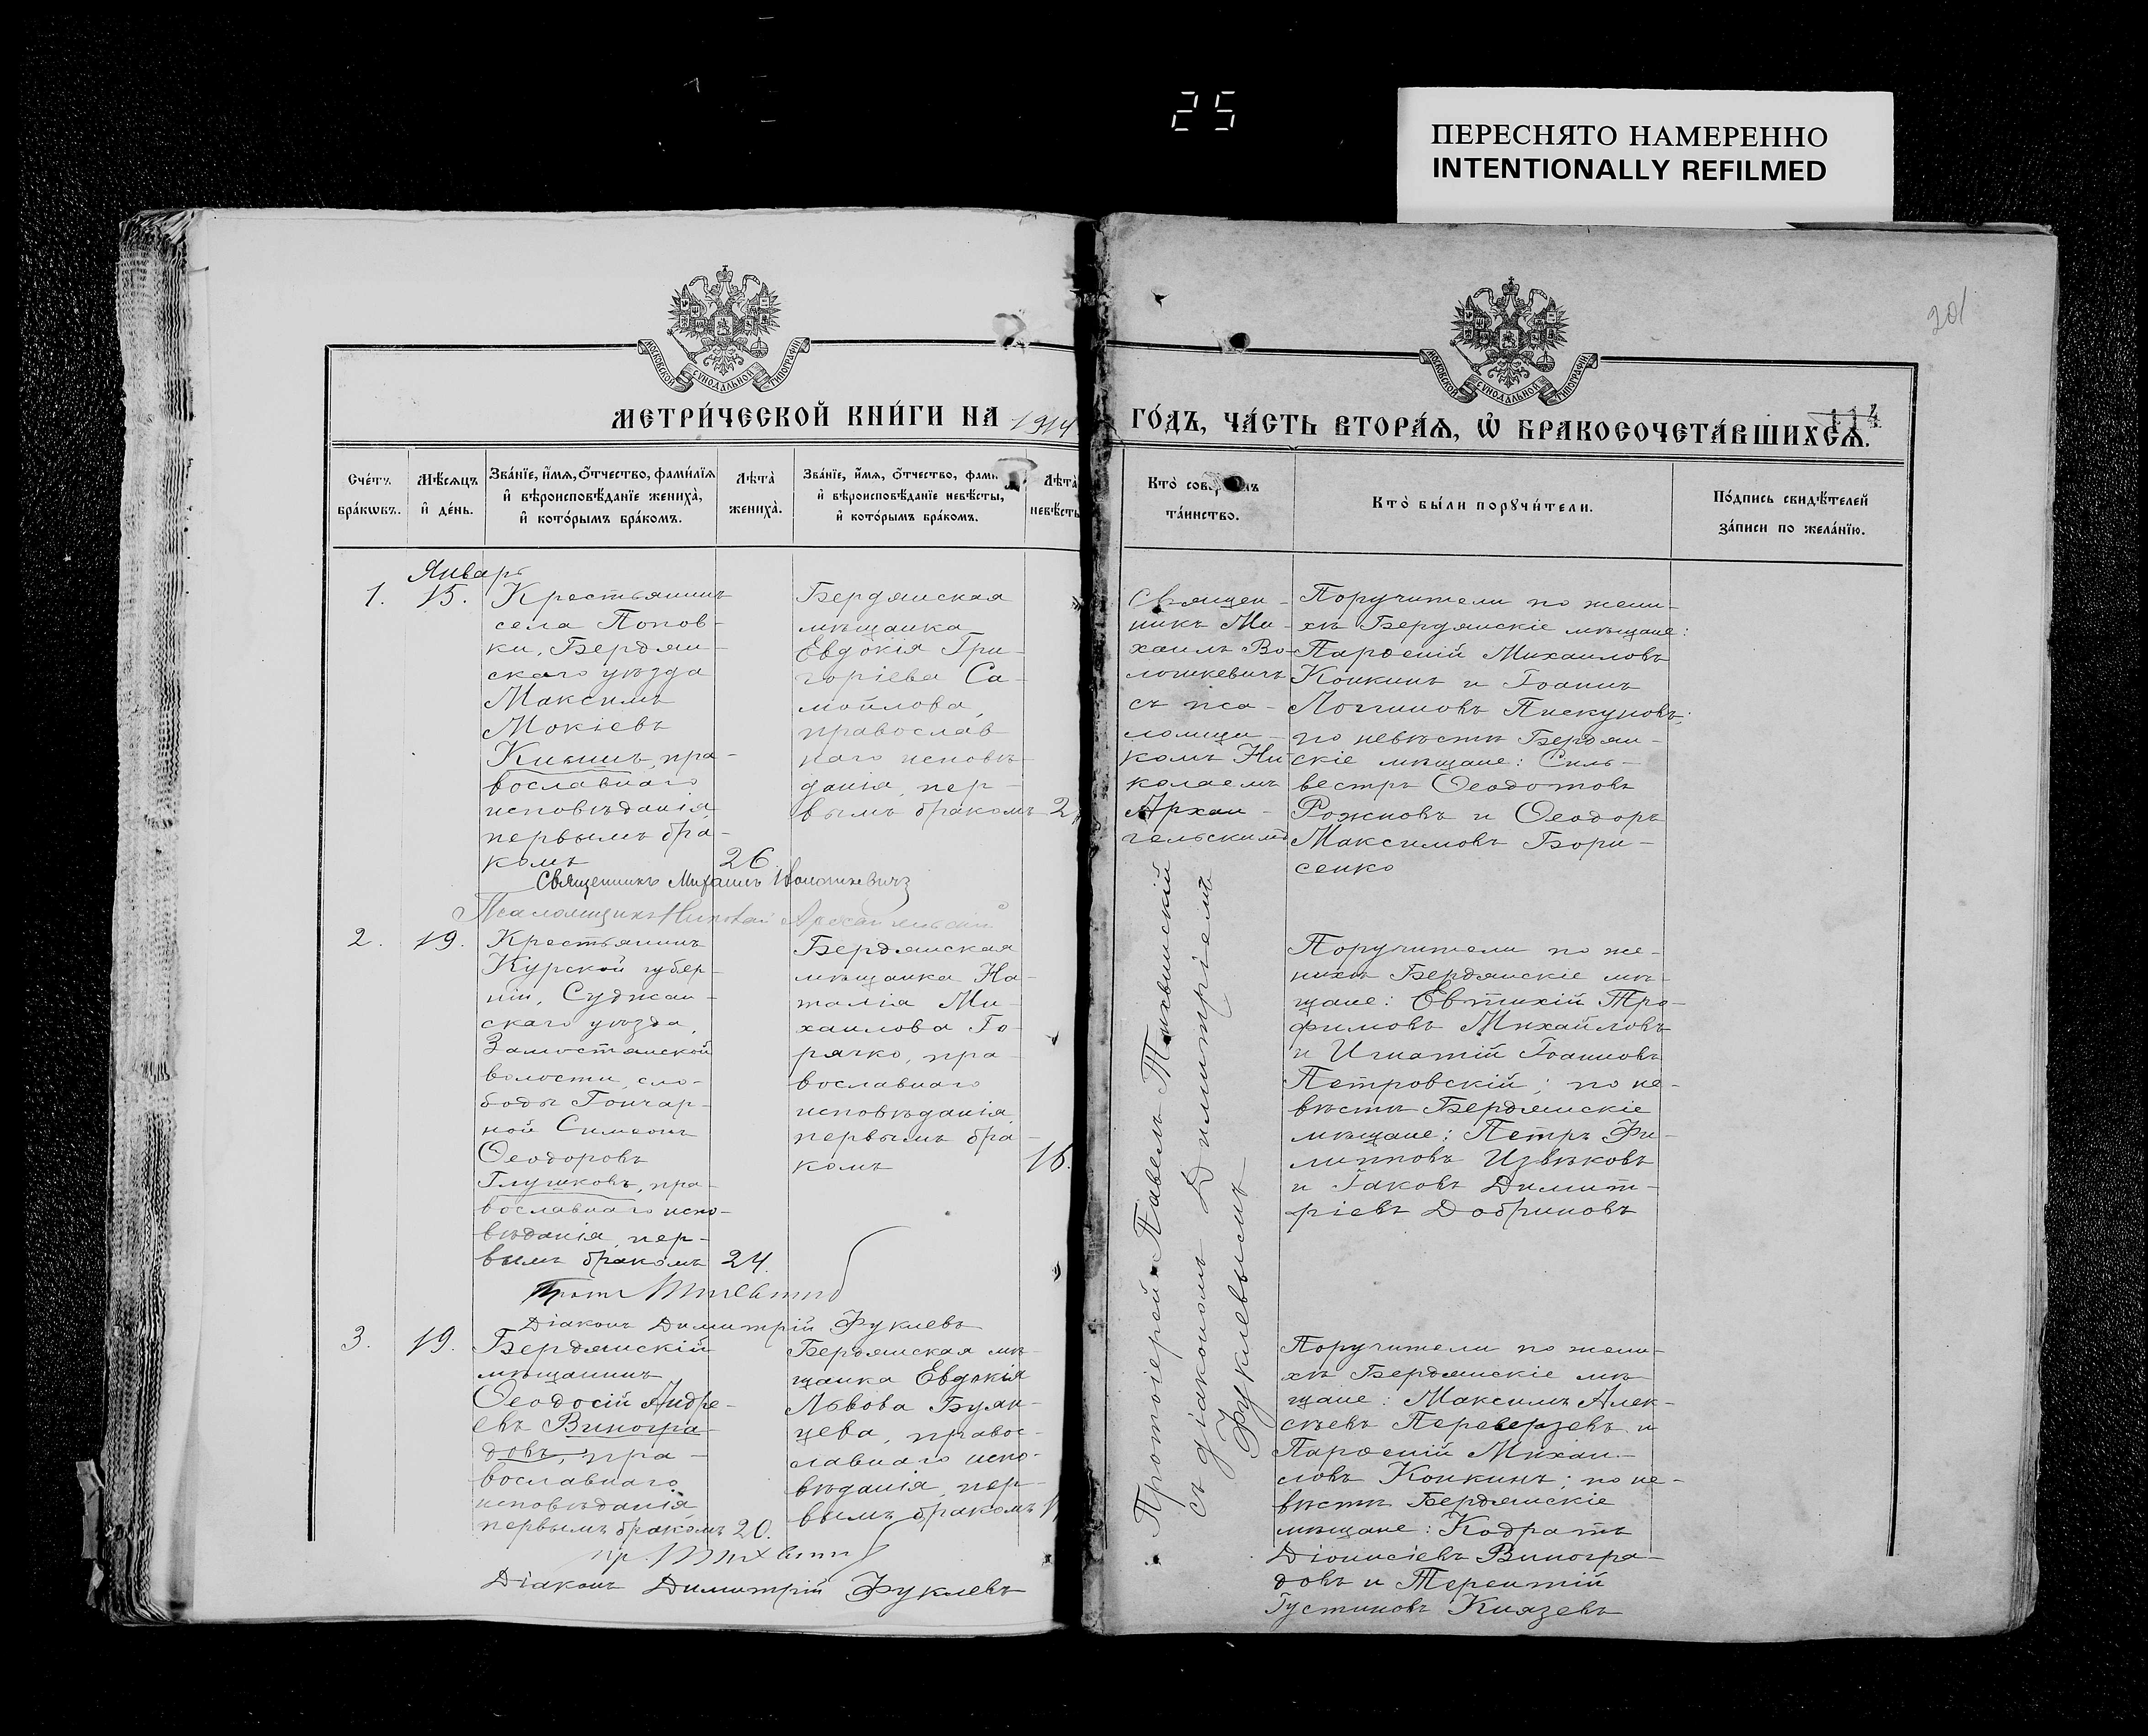 25
ПЕРЕСНЯТО НАМЕРЕННО
INTENTIONALLY REFILMED
201
114
МОСКОВСКОЙ СѴНОДАЛЬНОЙ ТИПОГРАФІИ
МОСКОВСКОЙ СѴНОДАЛЬНОЙ ТИПОГРАФІИ
МЕТРИ́ЧЕСКОЙ КНИ́ГИ НА 1914
ГО́ДЪ, ЧА́СТЬ ВТОРА́Ѧ, Ѡ҆ БРАКОСОЧЕТА́ВШИХСѦ.
Сче́тъ
бра́кѡвъ.
Мѣ́сѧцъ
и҆ де́нь.
Зва́нїе, и҆́мѧ, ѻ҆́тчество, фами́лїѧ
и҆ вѣроисповѣ́данїе жениха̀,
и҆ кото́рымъ бра́комъ.
Лѣта̀
жениха̀.
Зва́нїе, и҆́мѧ, ѻ҆́тчество, фами
и҆ вѣроисповѣ́данїе невѣ́сты,
и҆ кото́рымъ бра́комъ.
Лѣта̀
невѣ́сты
Кто̀
та́инство.
Кто̀ бы́ли порꙋчи́тели.
По́дпись свидѣ́телей
за́писи по жела́нїю.
Январь
1.
15.
Крестьянинъ
села Попов-
ки, Бердян-
скаго уѣзда
Максимъ
Мокіевъ
Киянъ, пра-
вославнаго
исповѣданія,
первымъ бра-
комъ
26
Бердянская
мѣщанка
Евдокія Гри-
горіева Са-
мойлова,
православ
наго исповѣ-
данія, пер-
вымъ бракомъ
Священ-
никъ Ми-
хаилъ Во-
лошкевичъ
съ пса-
ломщи-
комъ Ни-
колаемъ
Архан-
гельскимъ
Поручители по жени-
хѣ Бердянскіе мѣщане:
Парѳеній Михаиловъ
Конкинъ и Іоаннъ
Логгиновъ Пискуновъ;
по невѣстѣ Бердян-
скіе мѣщане: Силь-
вестръ Ѳеодотовъ
Рожновъ и Ѳеодоръ
Максимовъ Бори-
сенко
Священникъ Михаилъ Волошкевичъ
Псаломщикъ Николай Архангельскій
2.
19.
Крестьянинъ
Курской губер-
ніи, Суджан-
скаго уѣзда,
Замостянской
волости, сло-
боды Гончар-
ной Симеонъ
Ѳеодоровъ
Глушковъ, пра-
вославнаго испо-
вѣданія, пер-
вымъ бракомъ
24.
Бердянская
мѣщанка На-
талія Ми-
хаилова Го-
рячко, пра-
вославнаго
исповѣданія
первымъ бра-
комъ
16.
Протоіерей Павелъ Тихвинскій
съ діакономъ Димитріемъ
Фуклевымъ
Поручители по же-
нихѣ Бердянскіе мѣ-
щане: Евтихій Тро-
фимовъ Михайловъ
и Игнатій Іоанновъ
Петровскій; по не-
вѣстѣ Бердянскіе
мѣщане: Петръ Фи-
липповъ Извѣковъ
и Іаковъ Димит-
ріевъ Добриновъ
Діаконъ Димитрій Фуклевъ
3.
19.
Бердянскій
мѣщанинъ
Ѳеодосій Андре-
евъ Виногра-
довъ, пра-
вославнаго
исповѣданія
первымъ бракомъ
20.
Бердянская мѣ-
щанка Евдокія
Львова Буян-
цева, правос-
лавнаго испо-
вѣданія, пер-
вымъ бракомъ
Поручители по жени-
хѣ Бердянскіе мѣ-
щане: Максимъ Алек-
сѣевъ Переверзевъ и
Парѳеній Михаи-
ловъ Конкинъ; по не-
вѣстѣ Бердянскіе
мѣщане: Кодратъ
Діонисіевъ Виногра-
довъ и Терентій
Іустиновъ Князевъ
пр. Тихвинскій
Діаконъ Димитрій Фуклевъ